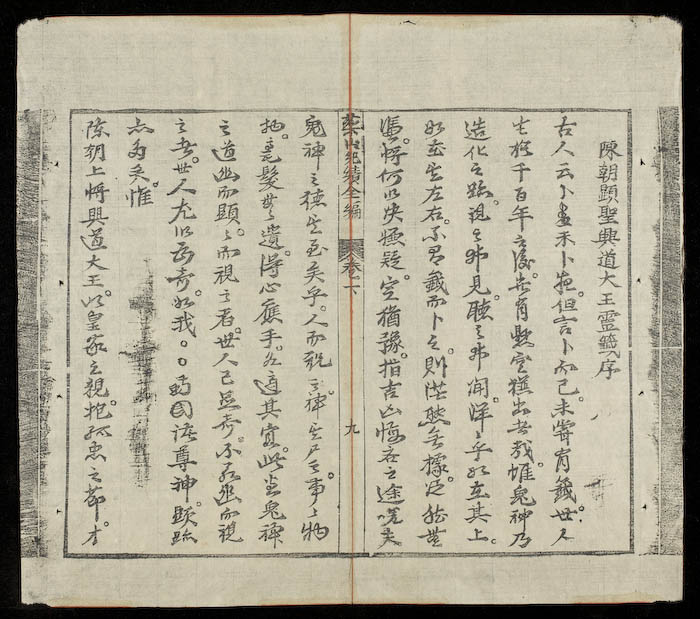 陳朝顕聖興道大王靈籤序
古人云卜晝未卜夜。但言卜而已。未嘗有籤。世人
生於千百年之後。豈有懸空撰出者哉。惟鬼神乃
造化之跡。視之弗見。聽之弗聞。洋〻乎如在其上。
如在其左右。不有籤而卜之。則茫然無據。
憑。將何以决狐疑。定猶豫。指吉凶悔吝之途
藥山紀績全編
卷之下
九
鬼神之德其至矣乎。人而祝之。神其尸之。事〻物
物。毫髮無遺。得心應手。各適其宜。此鬼神
之道幽而顯。顯而視之者。世人已為奇。不及幽而視
之者。世人尤以為奇如我。〻南國諸尊神。顕跡
亦多矣。惟
陳朝上將興道大王。以皇家之親。抱孤忠之節。才